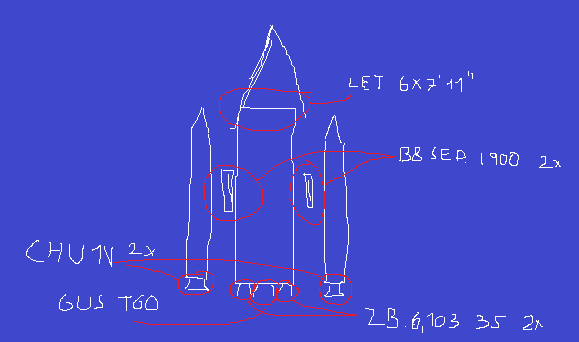 LET 6x7'11"
BB SEP. 1900 2x
CHU 1V 2x
GUS T60
ZB.6,103 35 2x